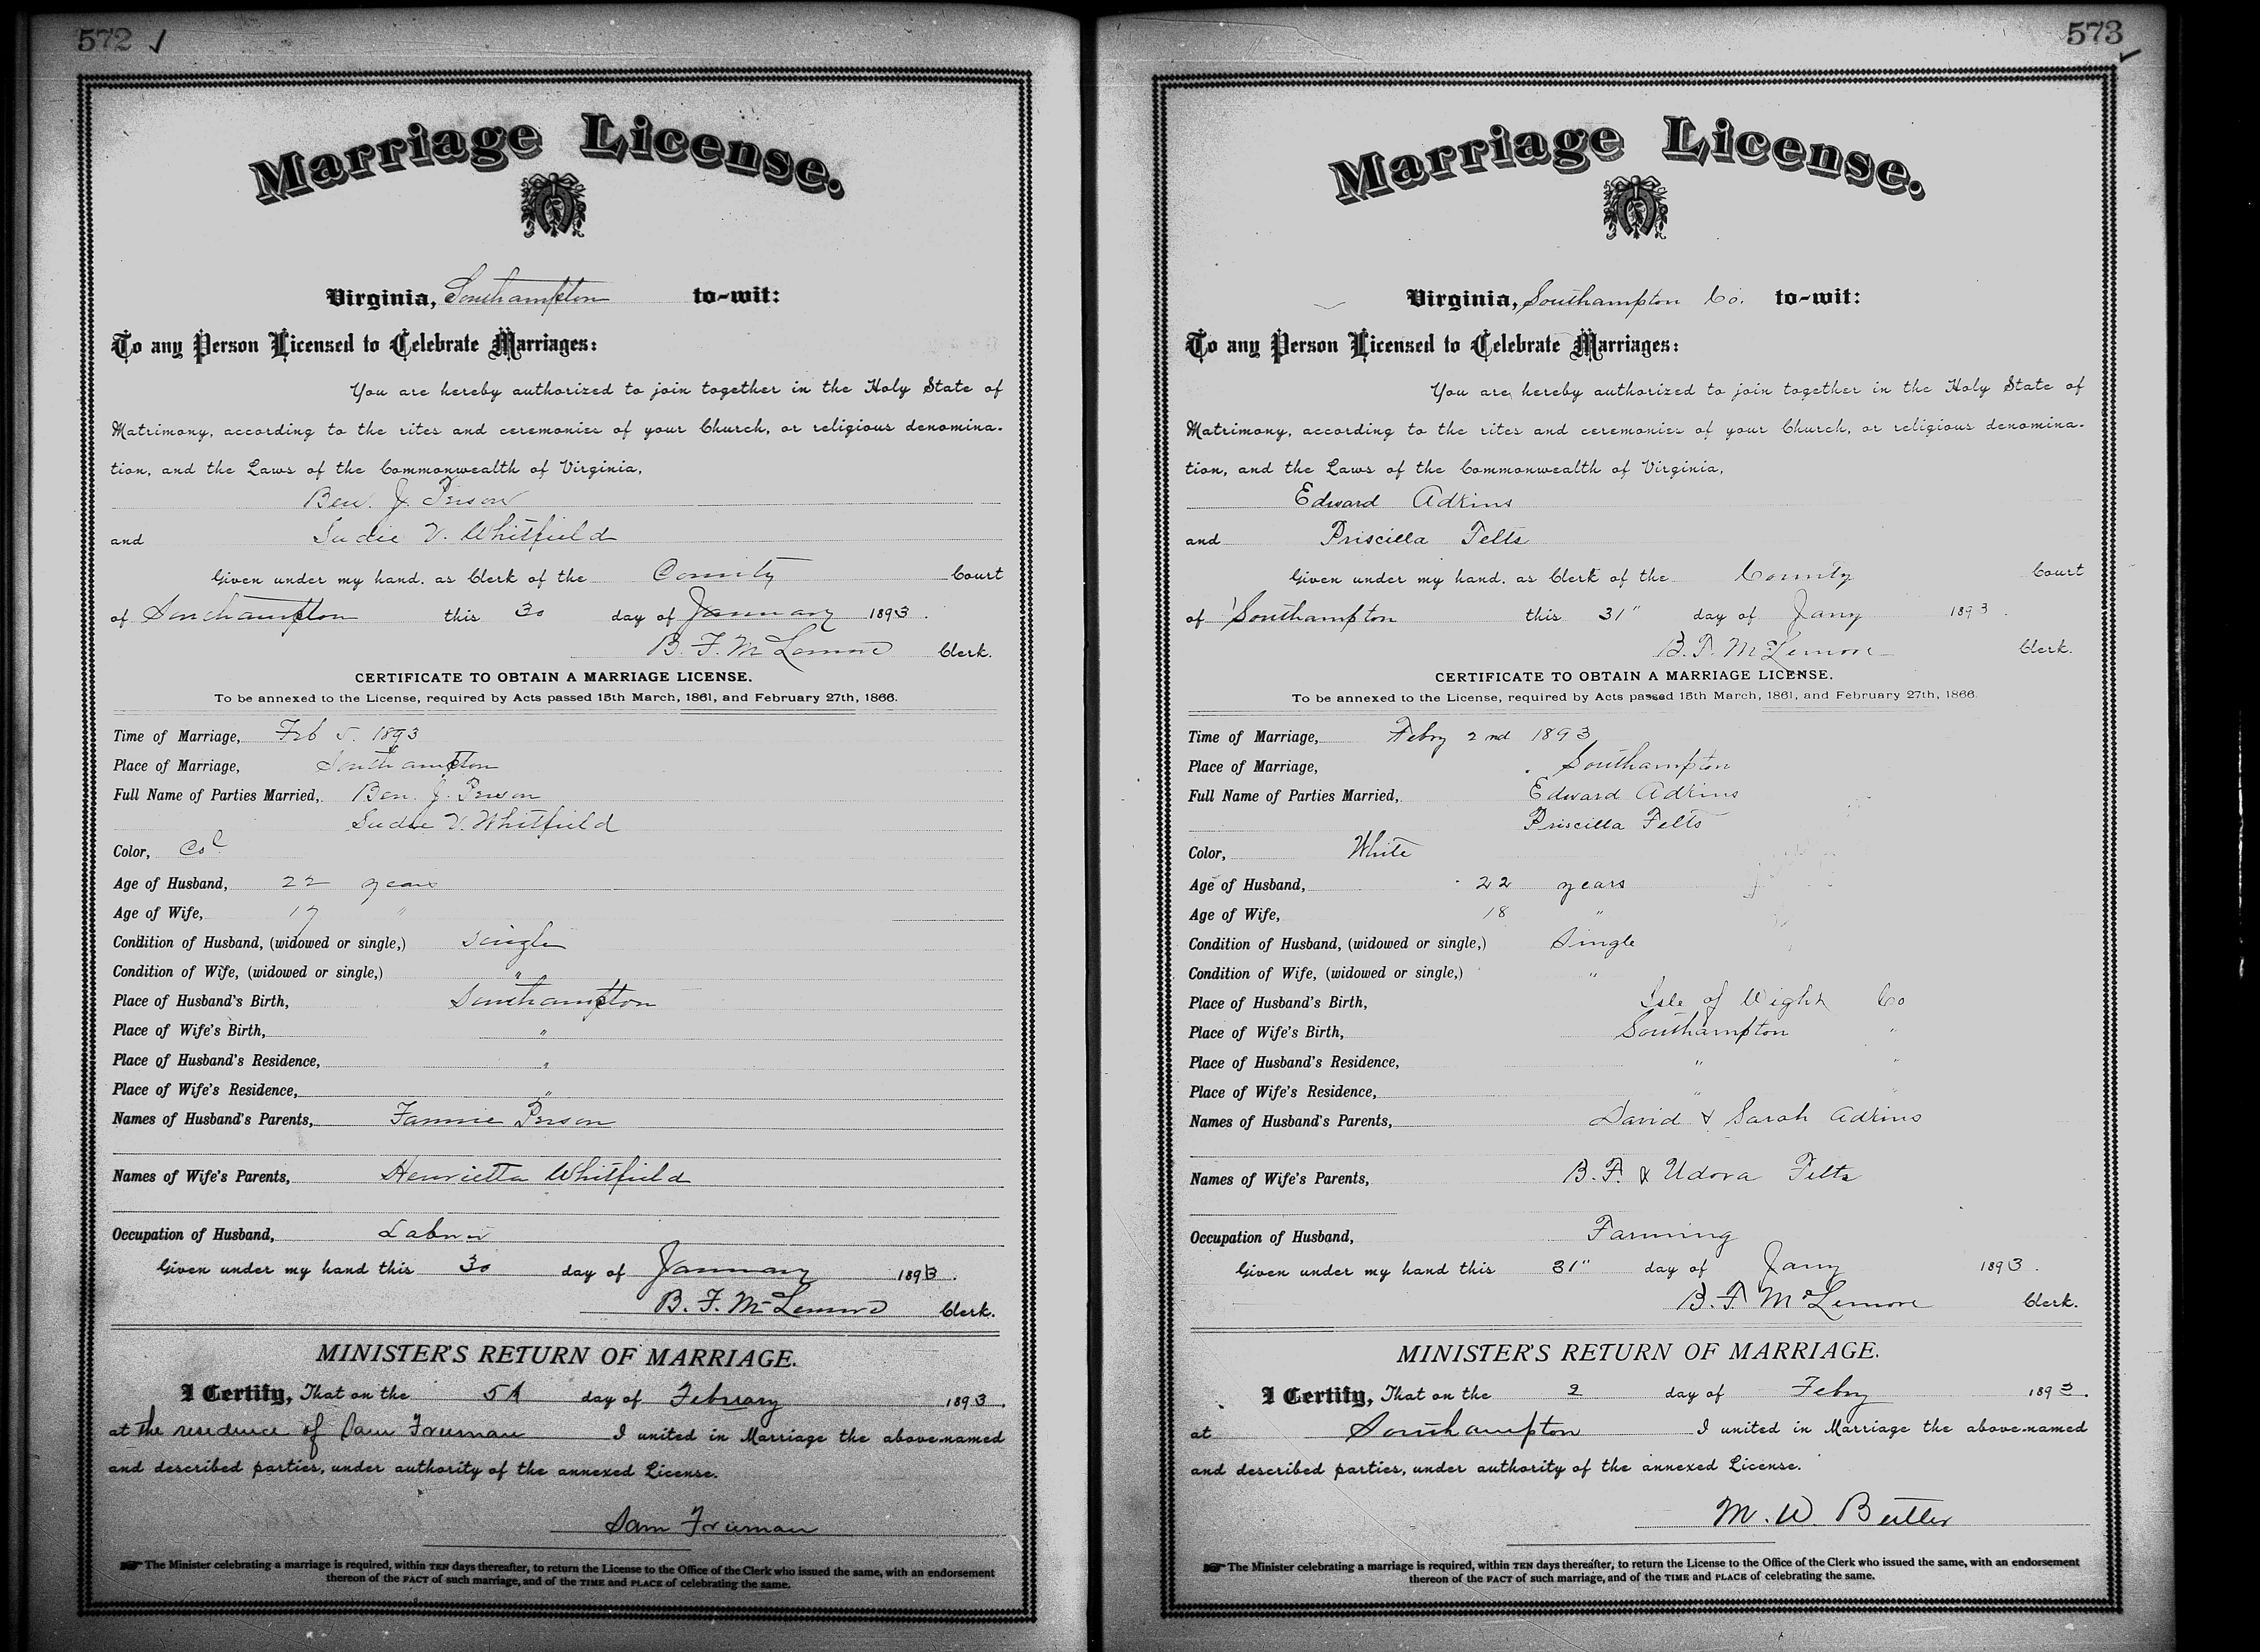 572 ✓
Marriage License.
Virginia, Southampton to-wit:
To any Person Licensed to Celebrate Marriages:
You are hereby authorized to join together in the Holy State of
Matrimony, according to the rites and ceremonies of your Church, or religious denomina-
tion, and the Laws of the Commonwealth of Virginia,
Ben. J. Person
and Sudie V. Whitfield
Given under my hand, as Clerk of the County Court
of Southampton this 30 day of January 1893.
B. F. McLemore Clerk.
CERTIFICATE TO OBTAIN A MARRIAGE LICENSE.
To be annexed to the License, required by Acts passed 15th March, 1861, and February 27th, 1866.
Time of Marriage, Feb 5. 1893
Place of Marriage, Southampton
Full Name of Parties Married, Ben. J. Person
Sudie V. Whitfield
Color, Col
Age of Husband, 22 years
Age of Wife, 17 "
Condition of Husband, (widowed or single,) Single
Condition of Wife, (widowed or single,) "
Place of Husband's Birth, Southampton
Place of Wife's Birth, "
Place of Husband's Residence, "
Place of Wife's Residence, "
Names of Husband's Parents, Fannie Person
Names of Wife's Parents, Henrietta Whitfield
Occupation of Husband, Labor
Given under my hand this 30 day of January 1893.
B. F. McLemore Clerk.
MINISTER'S RETURN OF MARRIAGE.
I Certify, That on the 5th day of February 1893.
at the residence of Sam Freeman I united in Marriage the above-named
and described parties, under authority of the annexed License.
Sam Freeman
☞ The Minister celebrating a marriage is required, within TEN days thereafter, to return the License to the Office of the Clerk who issued the same, with an endorsement
thereon of the FACT of such marriage, and of the TIME and PLACE of celebrating the same.
573 ✓
Marriage License.
Virginia, Southampton Co. to-wit:
To any Person Licensed to Celebrate Marriages:
You are hereby authorized to join together in the Holy State of
Matrimony, according to the rites and ceremonies of your Church, or religious denomina-
tion, and the Laws of the Commonwealth of Virginia,
Edward Adkins
and Priscilla Felts
Given under my hand, as Clerk of the County Court
of Southampton this 31" day of Jany 1893.
B. F. McLemore Clerk.
CERTIFICATE TO OBTAIN A MARRIAGE LICENSE.
To be annexed to the License, required by Acts passed 15th March, 1861, and February 27th, 1866.
Time of Marriage, Febry 2nd 1893
Place of Marriage, Southampton
Full Name of Parties Married, Edward Adkins
Priscilla Felts
Color, White
Age of Husband, 22 years
Age of Wife, 18 "
Condition of Husband, (widowed or single,) Single
Condition of Wife, (widowed or single,) "
Place of Husband's Birth, Isle of Wight Co
Place of Wife's Birth, Southampton "
Place of Husband's Residence, " "
Place of Wife's Residence, " "
Names of Husband's Parents, David & Sarah Adkins
Names of Wife's Parents, B. F. & Udora Felts
Occupation of Husband, Farming
Given under my hand this 31" day of Jany 1893.
B. F. McLemore Clerk.
MINISTER'S RETURN OF MARRIAGE.
I Certify, That on the 2 day of Febry 1893.
at Southampton I united in Marriage the above-named
and described parties, under authority of the annexed License.
M. W. Butler
☞ The Minister celebrating a marriage is required, within TEN days thereafter, to return the License to the Office of the Clerk who issued the same, with an endorsement
thereon of the FACT of such marriage, and of the TIME and PLACE of celebrating the same.